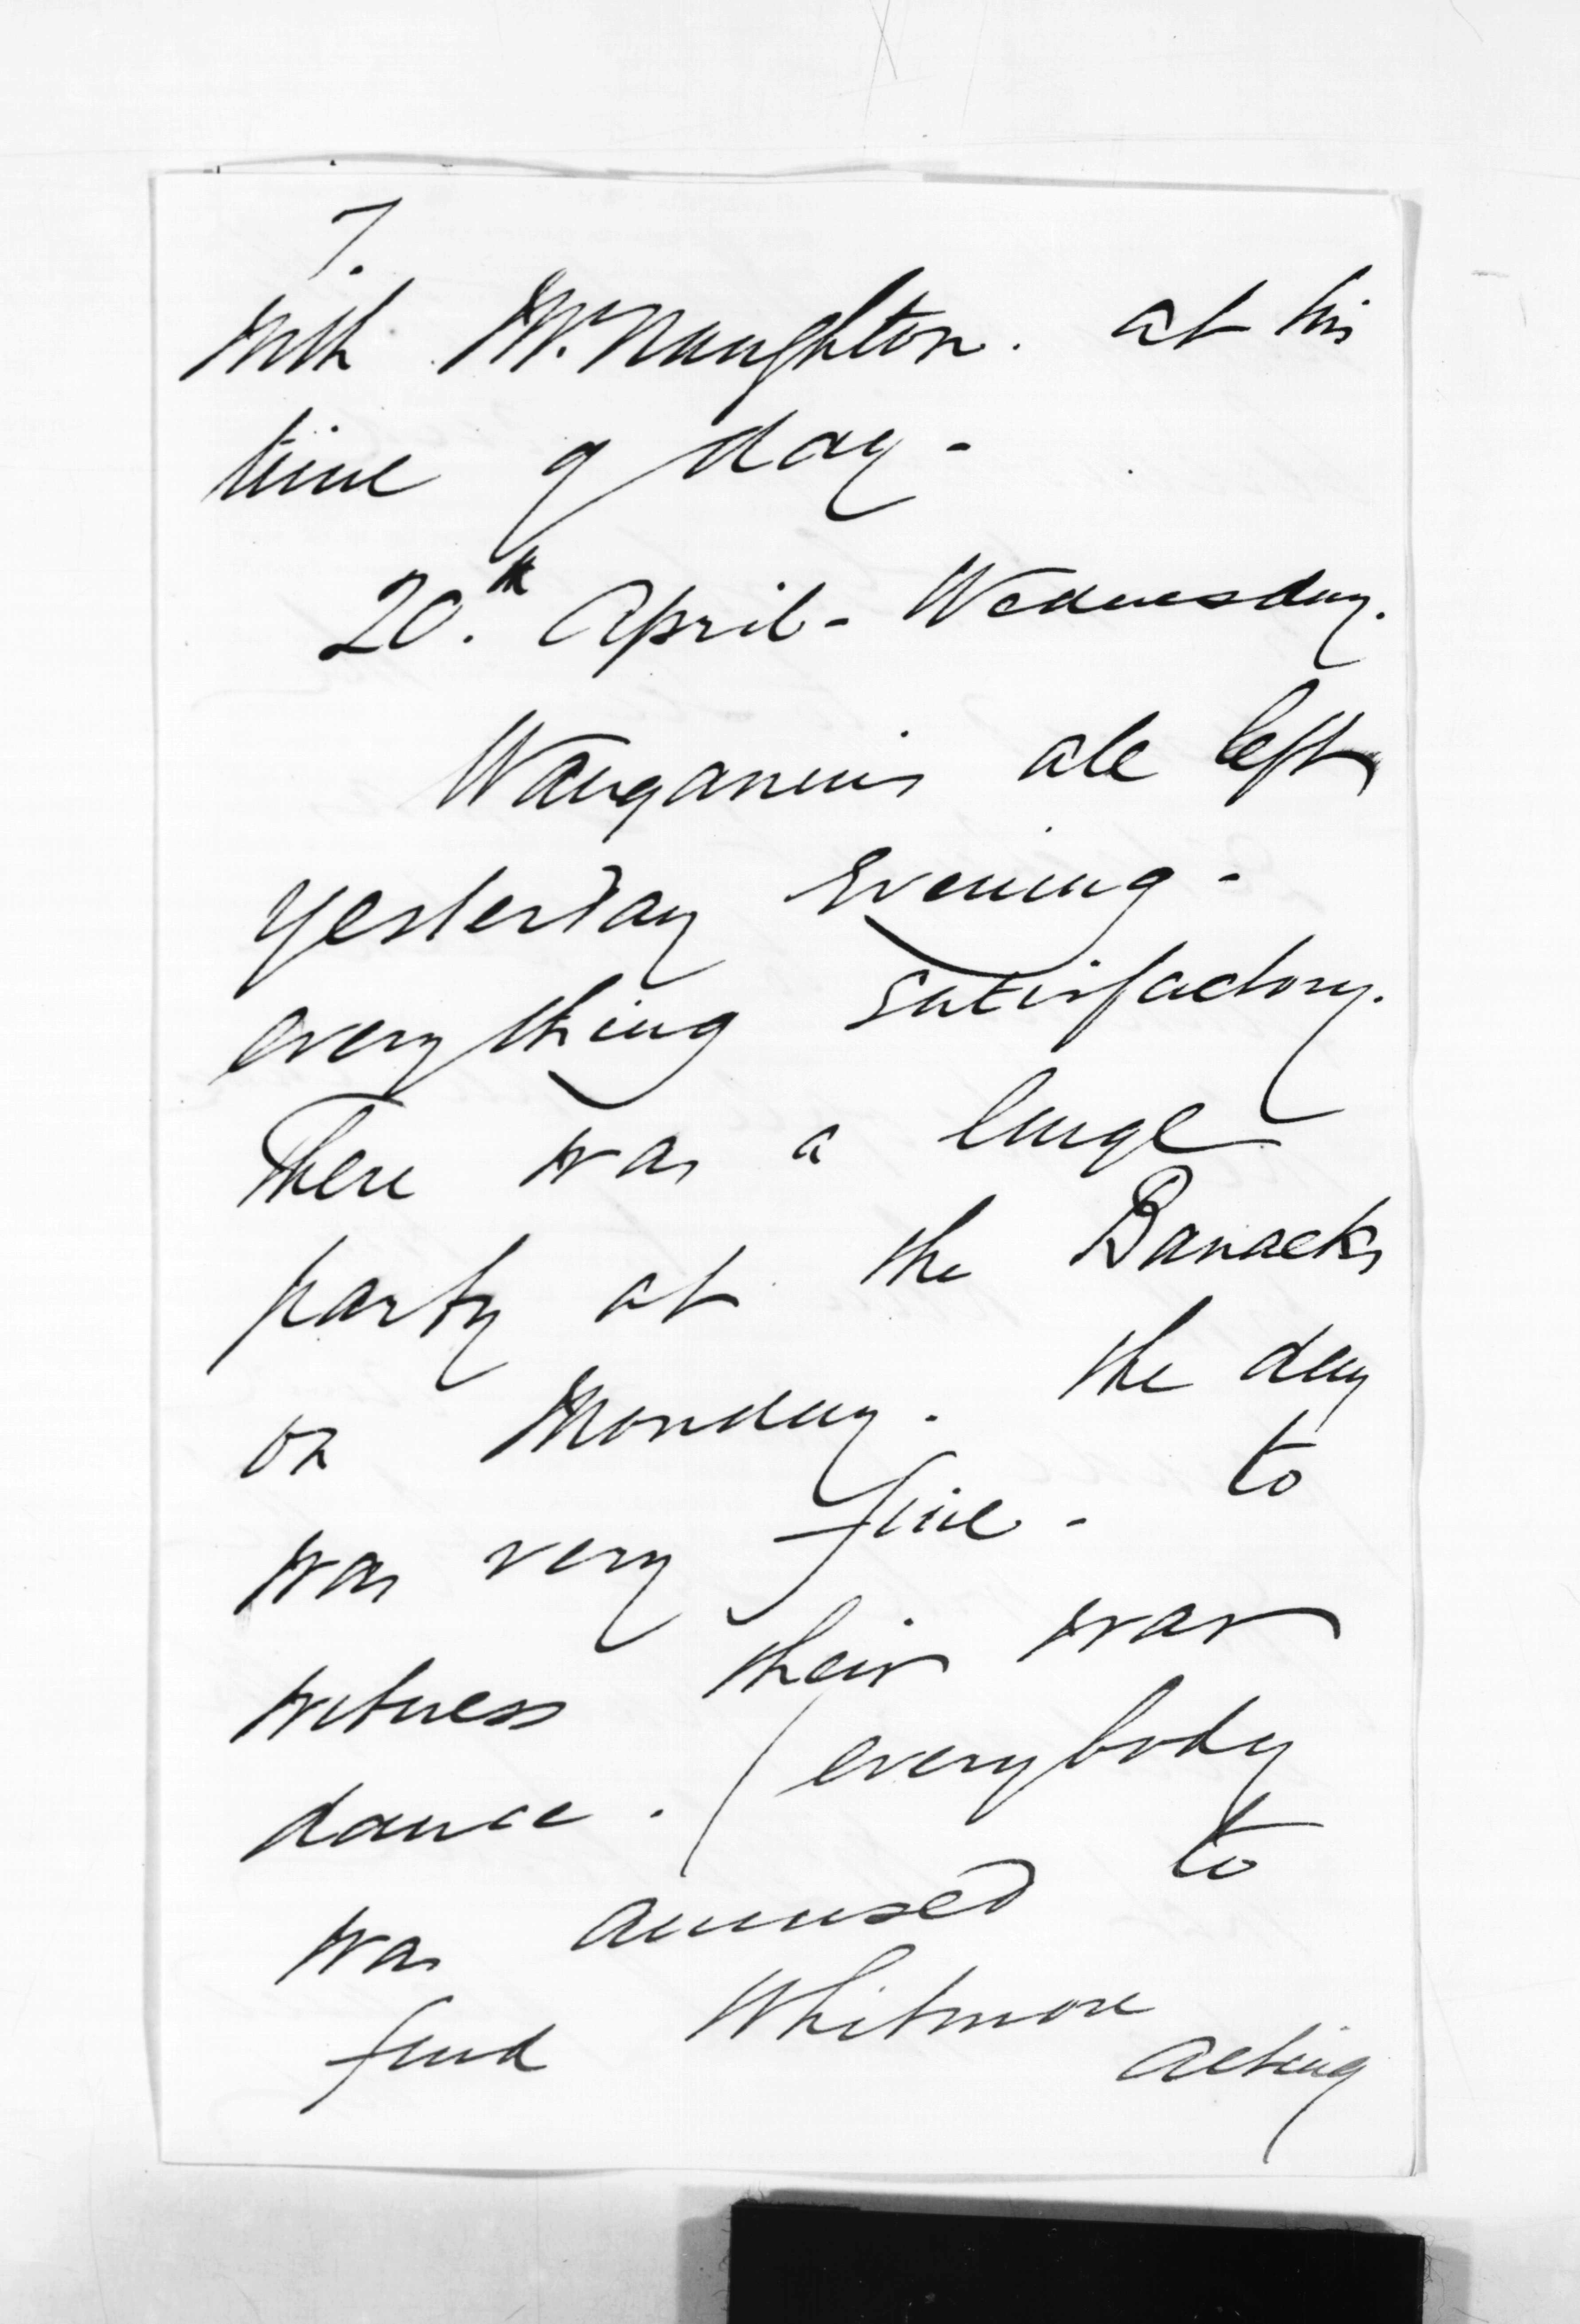 7.
with McNaughton. at his
time of day -
20.th April - Wednesday.
Wanganuis all left
yesterday evening -
everything satisfactory.
There was a large
party at the Barracks
on Monday. the day
was very fine - to
witness their war
dance. (everybody
was amused to
find Whitmore
acting